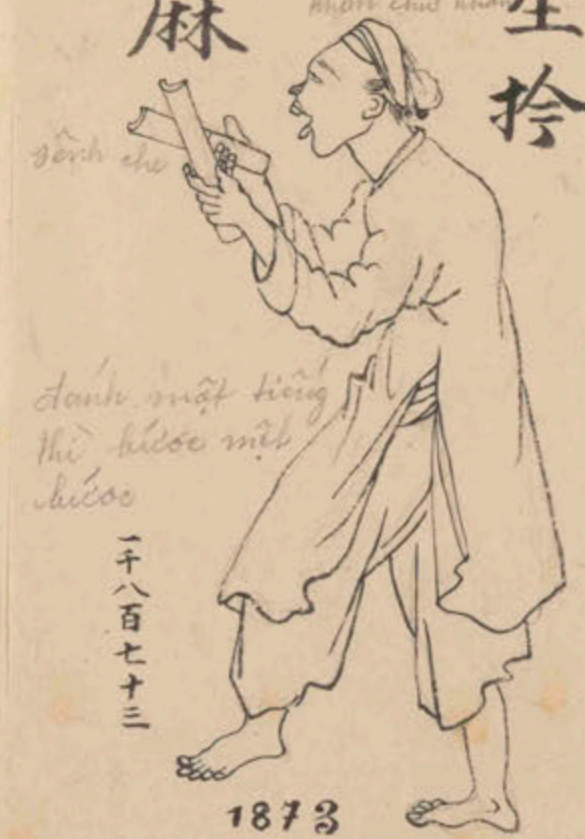 拎
麻
sênh che
đánh một tiếng
thì bước một
bước
一千八百七十三
1873